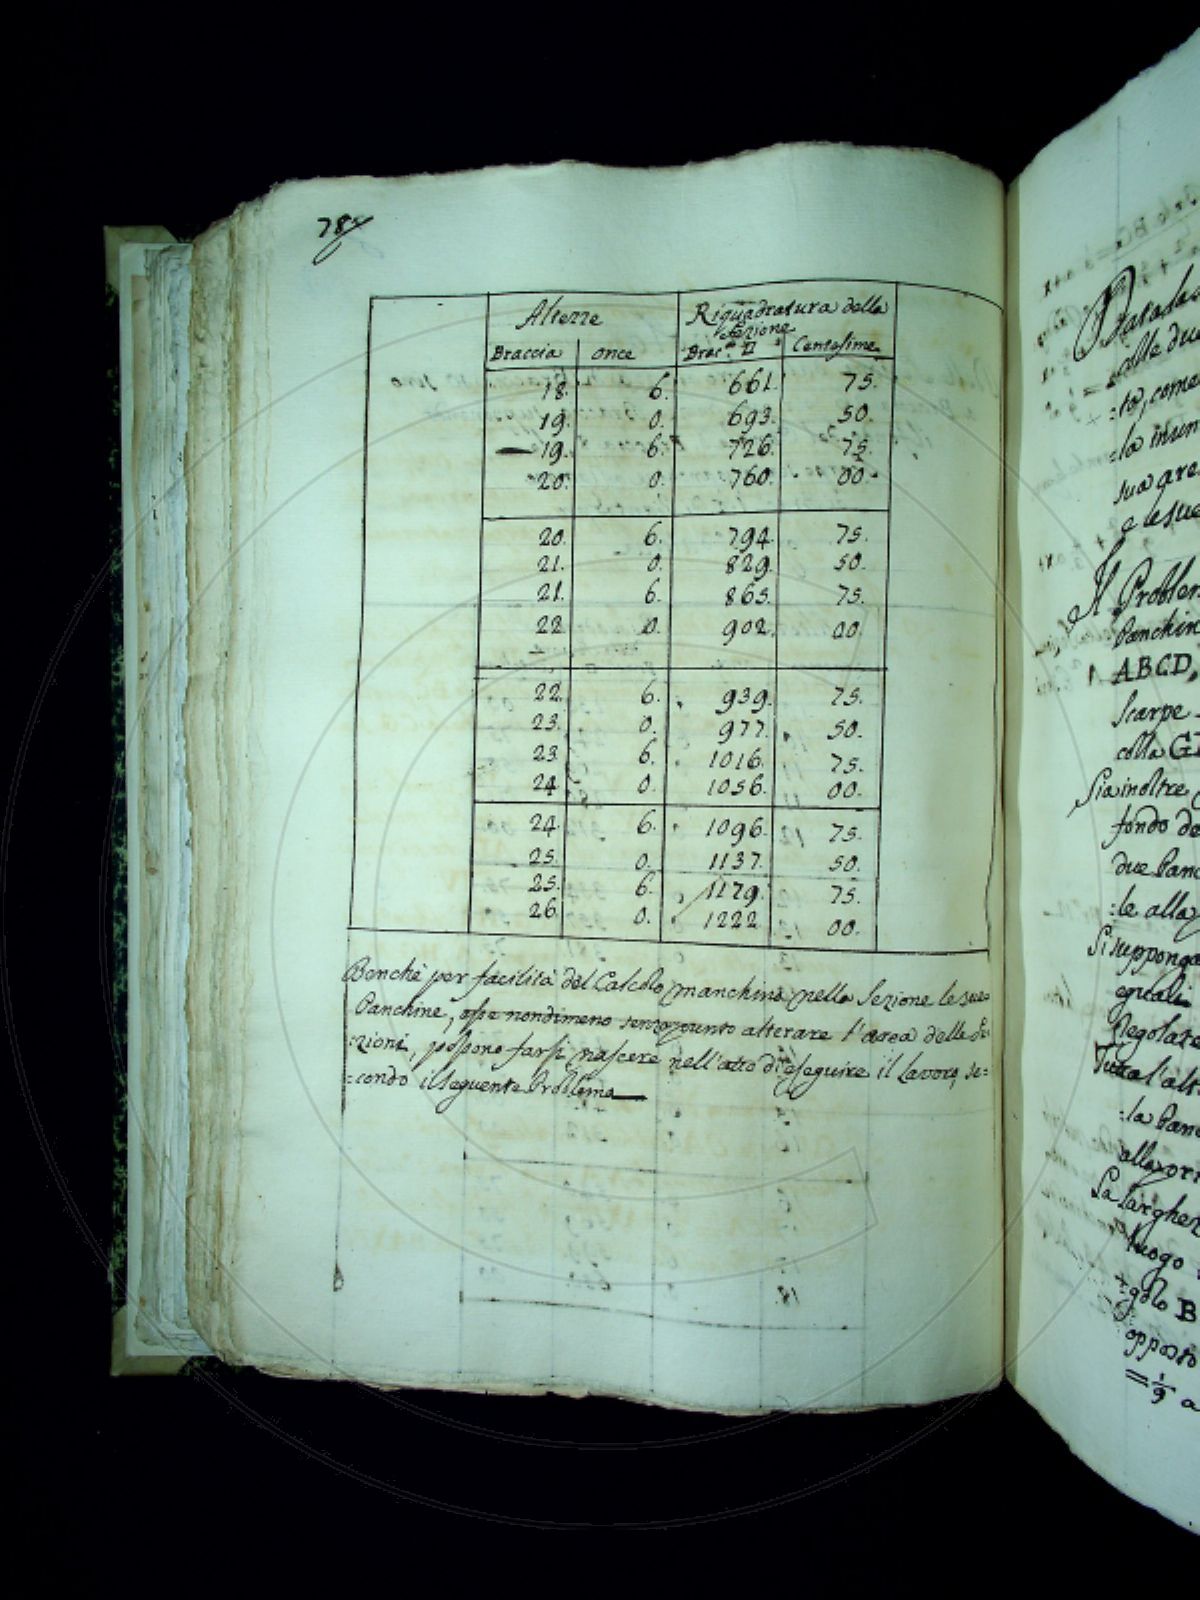 78
Altezze Riquadratura della
Sezione
Braccia once Brac.ª □ Centesime
18. 6. 661. 75.
19. 0. 693. 50.
19. 6. 726. 75.
20. 0. 760. 00.
20. 6. 794. 75.
21. 0. 829. 50.
21. 6. 865. 75.
22 0. 902. 00.
22. 6. 939. 75.
23. 0. 977. 50.
23 6. 1016. 75.
24 0. 1056. 00.
24. 6. 1096. 75.
25. 0. 1137. 50.
25. 6. 1179. 75.
26. 0. 1222 00.
Benchè per facilità del Calcolo manchino nella Sezione le sue
Panchine, esse nondimeno senza punto alterare l'area delle Se:
:zioni, possono farsi nascere nell'atto di eseguire il Lavoro, se=
=condo il seguente Problema
alle due
:to, come
:la
sua are
e le sue
Il Problem
Panchin
ABCD,
Scarpe
colla
Sia inoltre
fondo de
due Panc
:le alla
Si suppong
eguali
Regolare
Tutta l'alt
:la Pan
alla ori
La larghez
luogo
:golo B
opposto
=1/9 a